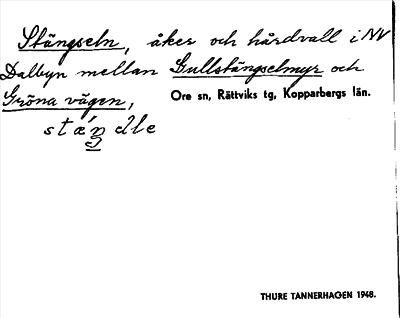 Stängseln, åker och hårdvall i NV
Dalbyn mellan Gullstängselmyr och
Gröna vägen,
Ore sn, Rättviks tg, Kopparbergs län.
THURE TANNERHAGEN 1948.